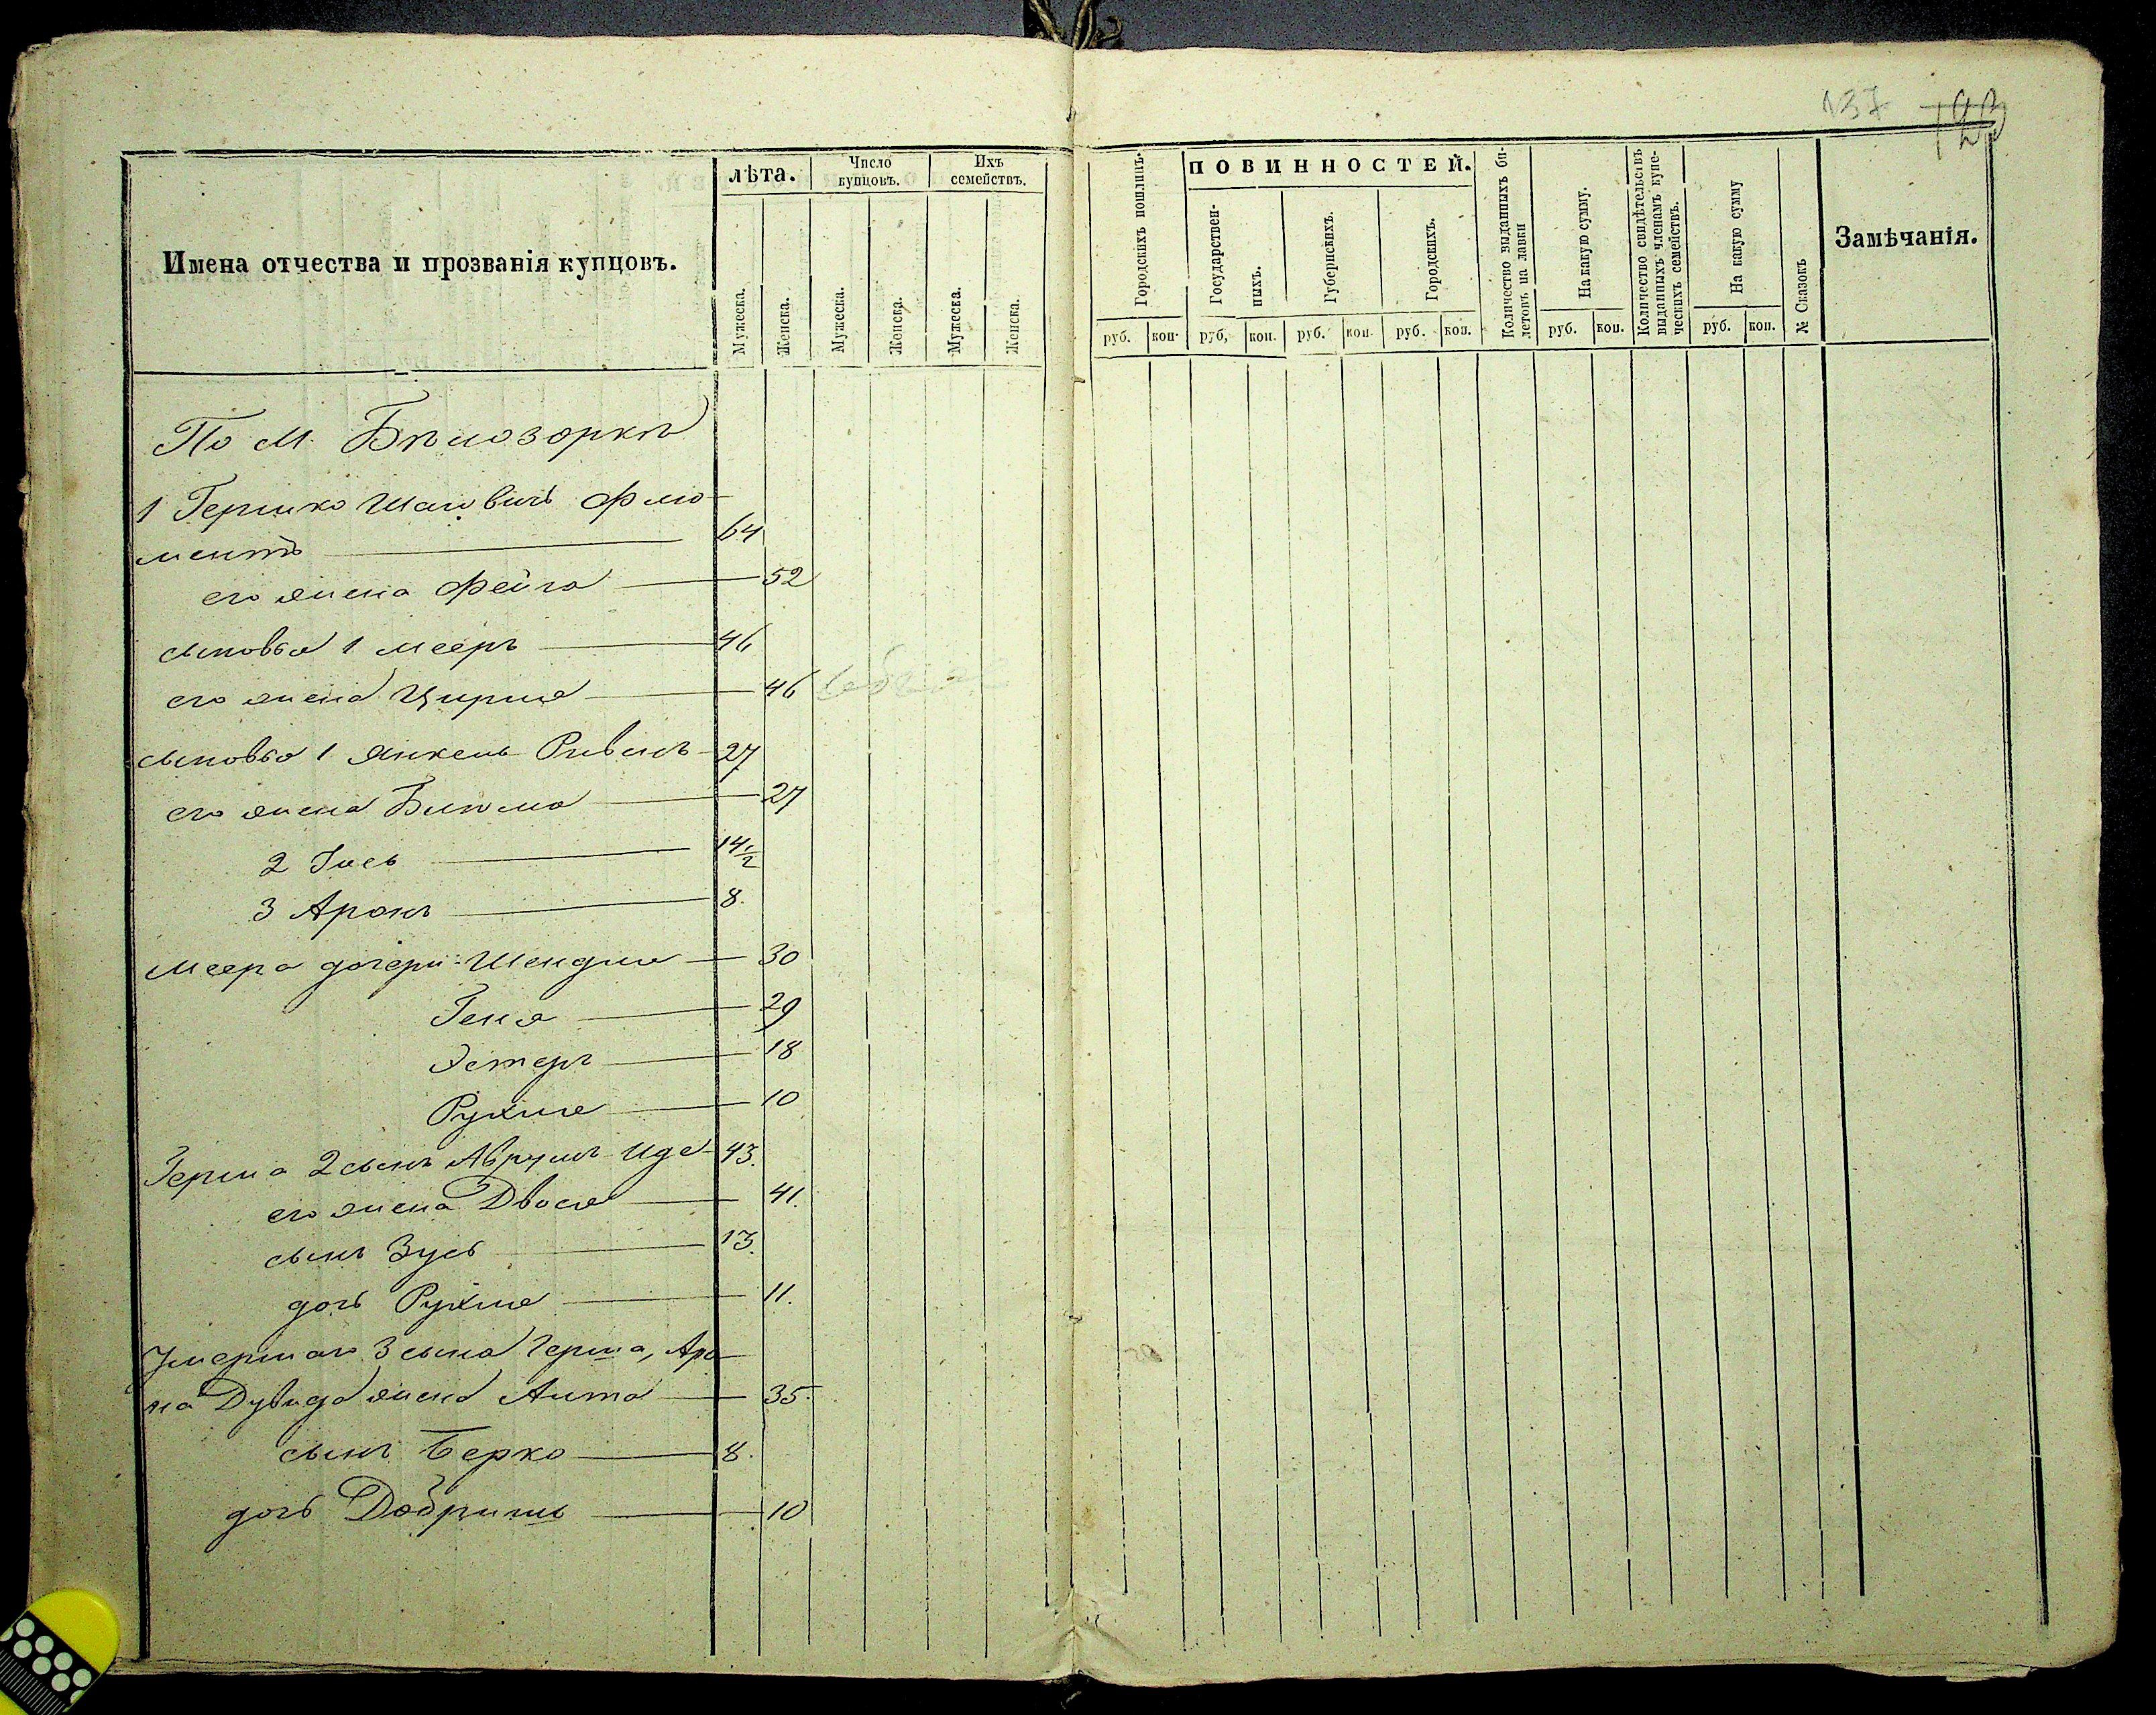 137 123
Имена отчества и прозванія купцовъ.
лѣта.
Число купцовъ.
Ихъ семействъ.
Мужеска.
Женска.
Мужеска.
Женска.
Мужеска.
Женска.
Городскихъ пошлинъ.
ПОВИННОСТЕЙ.
Государственныхъ.
Губернскихъ.
Городскихъ.
Количество выданныхъ билетовъ на лавки
На какую сумму.
Количество свидѣтельствъ выданныхъ членамъ купеческихъ семействъ.
На какую сумму
№ Сказокъ
Замѣчанія.
руб. коп. руб, коп. руб. коп. руб. коп. руб. коп. руб. коп.
По м. Бѣлозоркѣ
1 Гершко Шаевичъ Флю-
ментъ 64
его жена Фейга 52
сыновья 1 Мееръ 46
его жена Цирля 46
сыновья 1 Янкель Рывенъ 27
его жена Блюма 27
2 Іось 14 1/2
3 Аронъ 8.
Меера дочери: Шендля 30
Геня 29
Эстеръ 18
Рухля 10
Герша 2 сынъ Аврумъ Иде 43.
его жена Двося 41.
сынъ Зусь 13.
дочь Рухля 11.
Умершаго 3 сына Герша, Аро-
на Дувида жена Анта 35.
сынъ Берко 8.
дочь Добришь 10